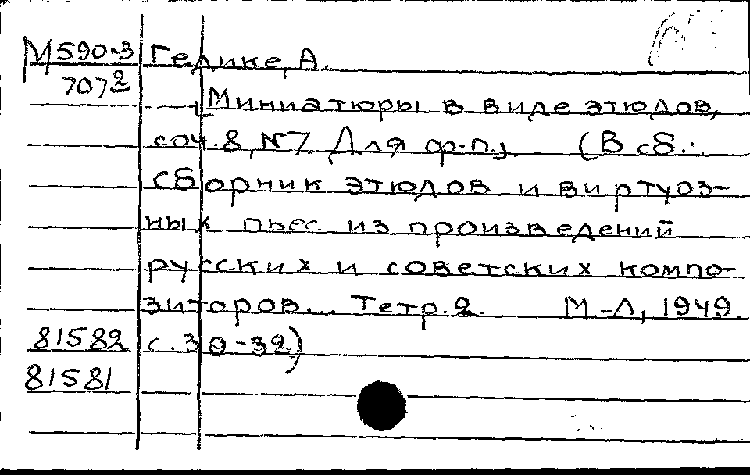 М590-3 Гедике, А.
707²
Миниатюры в виде этюдов,
соч. 8, №7. Для ф-п.). (В сб.:
Сборник этюдов и виртуоз-
ных пьес из произведений
русских и советских компо-
зиторов... Тетр. 2. М-Л, 1949.
81582 с. 30-32)
81581